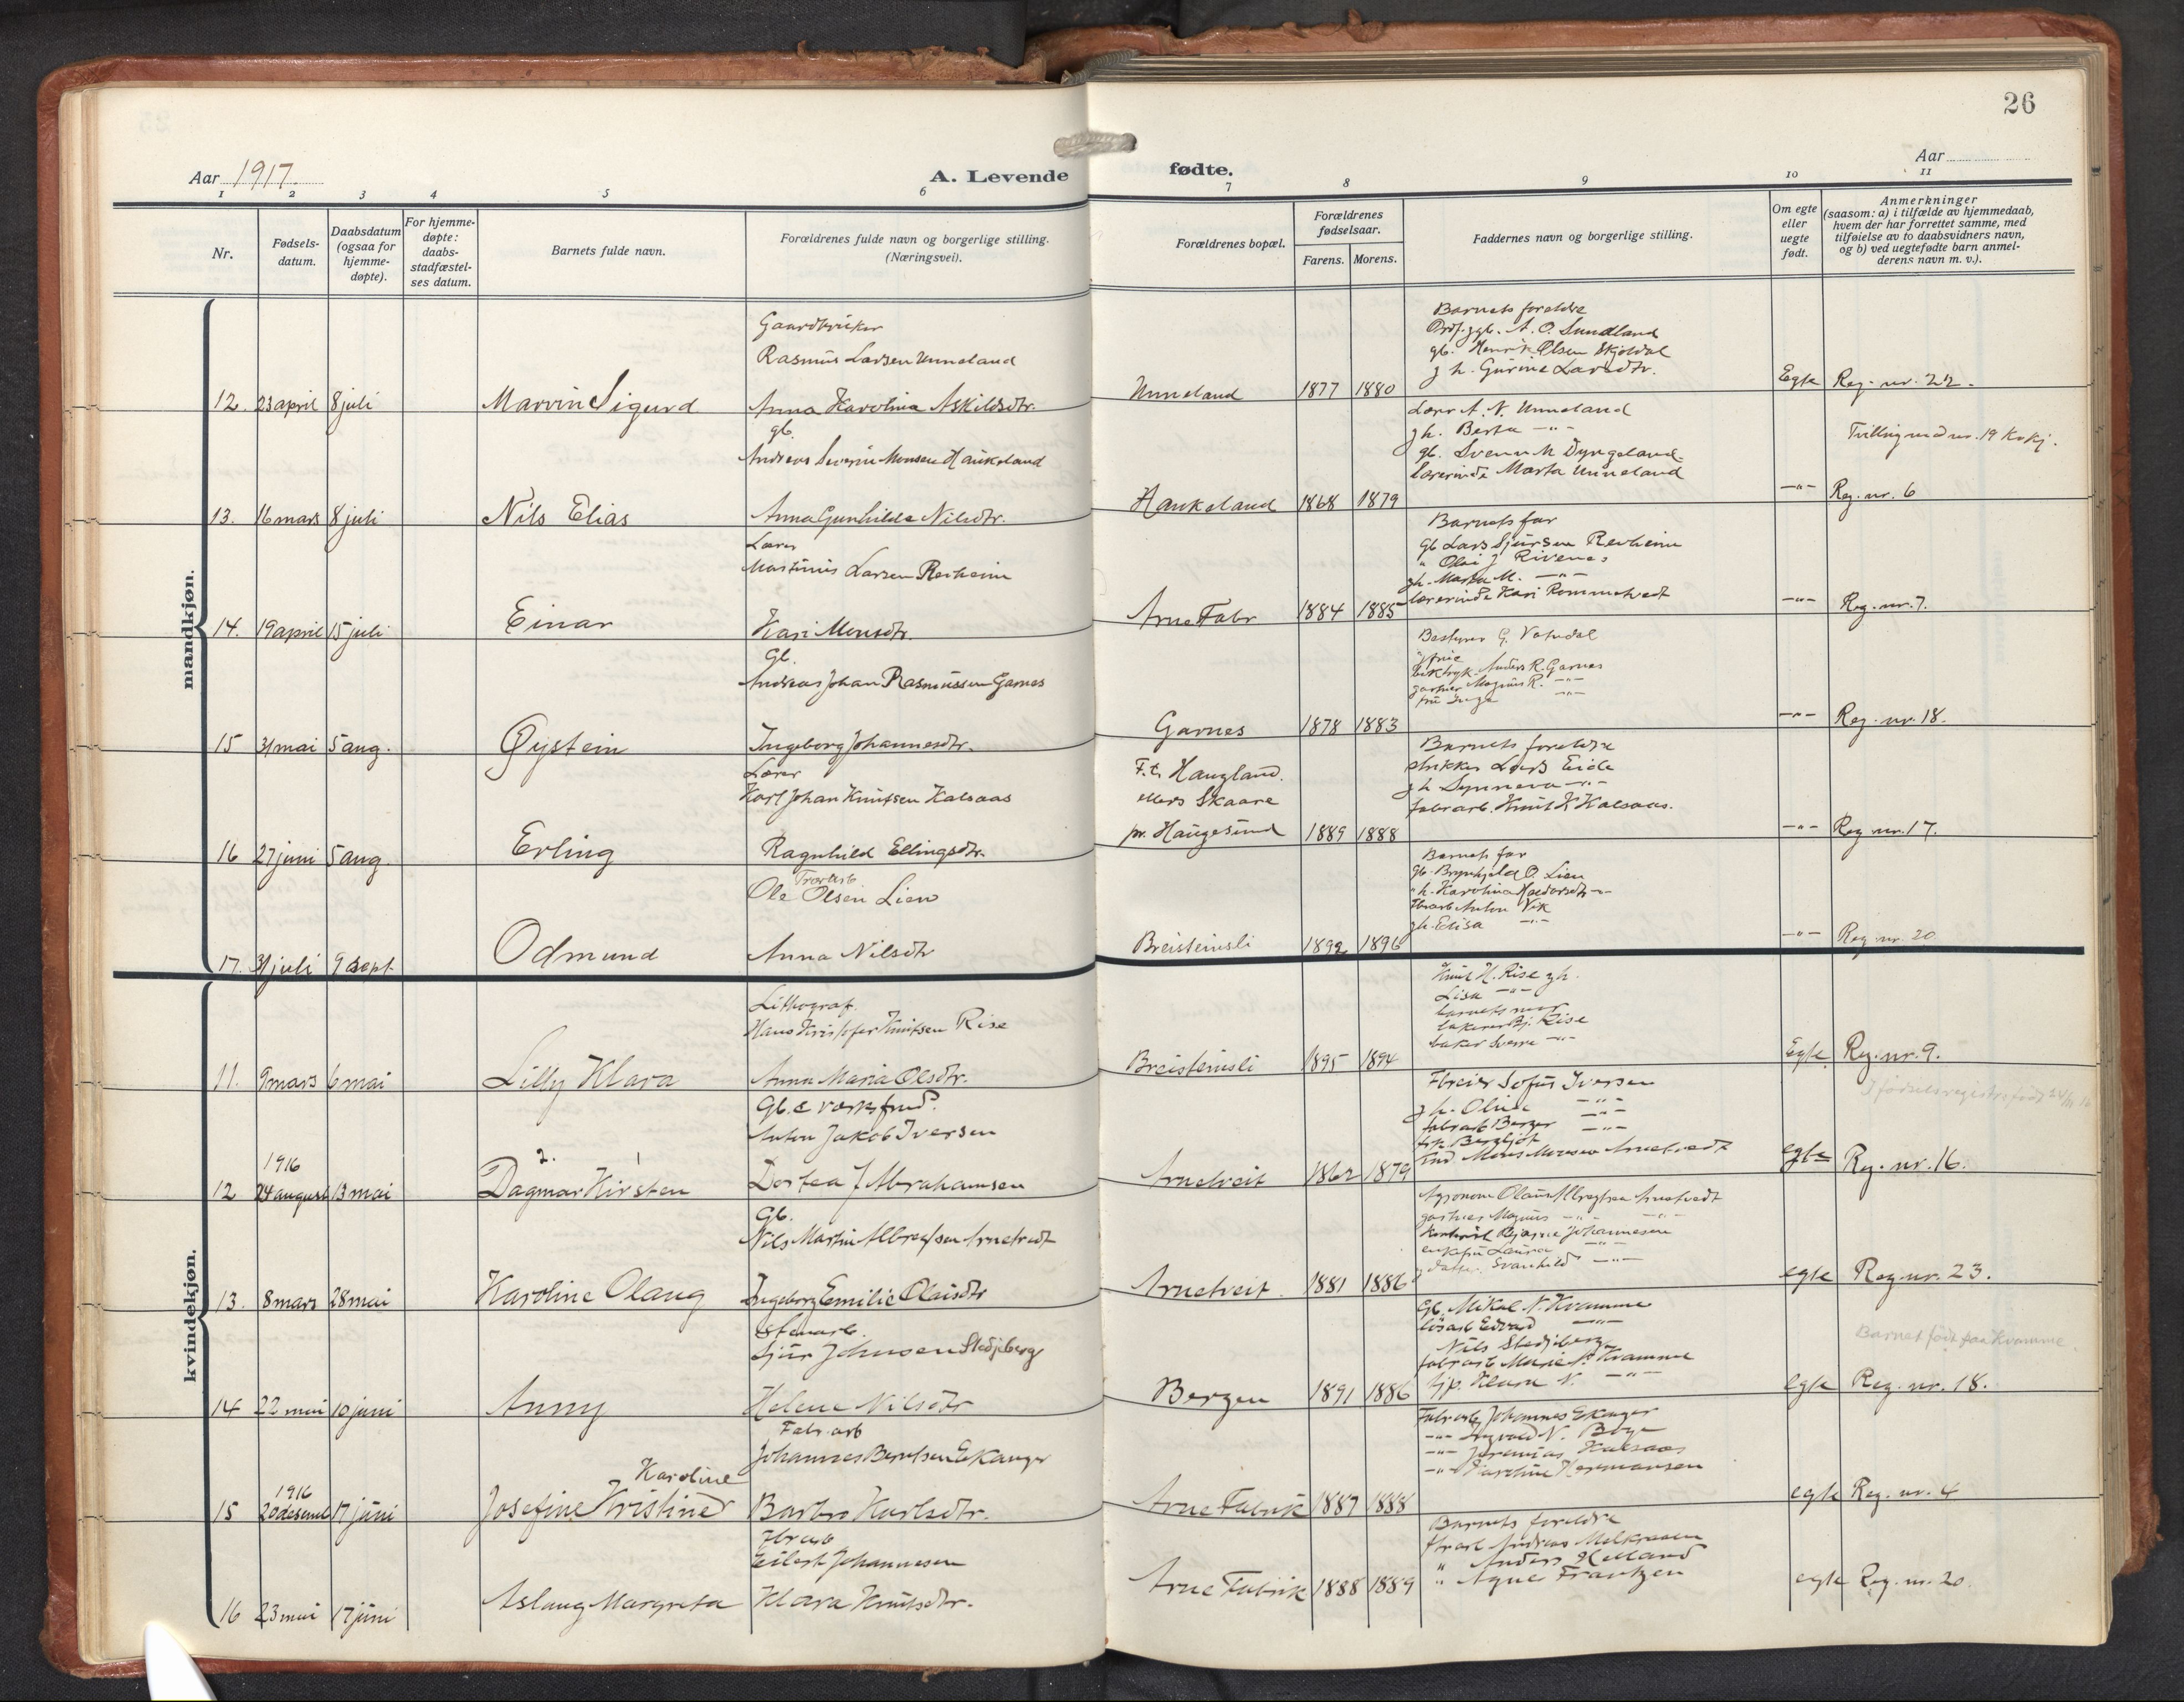 26
Aar 1917.
A. Levende
fødte.
Aar
1 2 3 4 5 6 7 8 9 10 11
Nr.
Fødsels-
datum.
Daabsdatum
(ogsaa for
hjemme-
døpte).
For hjemme-
døpte:
daabs-
stadfæstel-
ses datum.
Barnets fulde navn.
Forældrenes fulde navn og borgerlige stilling.
(Næringsvei).
Forældrenes bopæl.
Forældrenes
fødselsaar.
Farens. Morens.
Faddernes navn og borgerlige stilling.
Om egte
eller
uegte
født.
Anmerkninger
(saasom: a) i tilfælde av hjemmedaab,
hvem der har forrettet samme, med
tilføielse av to daabsvidners navn,
og b) ved uegtefødte barn anmel-
derens navn m. v.).
mandkjøn.
Gaardbruker
Rasmus Larsen Unneland
12. 23 april 8 juli Marvin Sigurd Anna Karolina Askildsdtr. Unneland 1877 1880
Barnets foreldre
A. O. Sundland
gb. Henrik Olsen Skjoldal
h. Gurine Larsdtr.
Egte Reg. nr. 22.
gb.
Andreas Severin Monsen Haukeland
13. 16 mars 8 juli Nils Elias Anna Gunhilda Nilsdtr. Haukeland 1868 1879
Lærer A. N. Unneland
gh. Berta -"-
gb. Svenn M Dyngeland
lærerinde Marta Unneland
Tvilling med nr. 19 kvkj.
-"- Reg. nr. 6
Lærer
Martinus Larsen Revheim
14. 19 april 15 juli Einar Kari Monsdtr. Arne Fabr 1884 1885
Barnets far
gb Lars Sjursen Revheim
" Olai J Rivenes
gh. Marta M. -"-
lærerinde Kari Rommetvedt
-"- Reg. nr. 7.
Gb.
Andreas Johan Rasmussen Garnes
15 31 mai 5 aug. Øystein Ingeborg Johannesdtr. Garnes 1878 1883
Bestyrer G. Vatndal
" frue
boktryk. Anders R. Garnes
gartner Magnus R. -"-
fru Inga -"-
-"- Reg. nr. 18.
Lærer
Karl Johan Knutsen Kalsaas
16 27 juni 5 aug Erling Ragnhild Ellingsdtr.
F.t. Haugland.
ellers Skaare
pr. Haugesund 1889 1888
Barnets foreldre
strikker Lars Eide
gh Synneva -"-
fabrarb. Knut K Kalsaas.
-"- Reg nr. 17.
Ole Olsen Lien
17. 31 juli 9 sept Odmund Anna Nilsdtr Breisteinsli 1892 1896
Barnets far
gb. Brynhjeld O. Lien
" h. Karolina Haldorsdtr -"-
fbrarb Anton Vik
gh. Elisa -"-
-"- Reg nr. 20
kvindekjøn.
Lithograf.
Hans Kristofer Knutsen Rise
11. 9 mars 6 mai Lilly Klara Anna Maria Olsdtr. Breisteinsli 1895 1894
Knut H. Rise gh.
Lisa -"-
barnets mor
Bj. Rise
baker Sverre -"-
Egte Reg. nr. 9.
I fødselsregistr. født
Gb. &
Anton Jakob Iversen
2. 1
12 1916
24 august 13 mai Dagmar Kirsten Dortea J Abrahamsen Arnetveit 1862 1879
Sofus Iversen
gh. Olina -"-
fabrarb Berger -"-
frk. Bergljot
Mons Monsen Arnetvedt
egte Reg. nr. 16.
Gb.
Nils Martin Albregtsen Arnetvedt
13. 8 mars 28 mai Karoline Olaug Ingeborg Emilie Olaisdtr Arnetveit. 1881 1886
Agronom Olaus Albregtsen Arnetvedt
gartner Magnus -"- -"-
Bjarne Johannesen
enkefru Laura -"-
Svanhild -"-
egte Reg. nr. 23.
Stenarb.
Sjur Johnsen Stedjeberg
14 22 mai 10 juni Anny Helene Nilsdtr Bergen 1891 1886
Gb. Mikal N. Kvamme
løsarb Edvard -"-
Nils Stedjeberg
fabrarb Marie N. Kvamme
tjp. Klara N. -"-
Barnet født paa Kvamme.
egte Reg. nr. 18.
Fabr.arb
Johannes Berntsen Ekanger
Karoline
15 1916
20 desemb 17 juni Josefine Kristine Barbro Karlsdtr. Arne Fabrik 1887 1888
Fabrarb. Johannes Ekanger
-"- Ingvald N. Borge
-"- Jeremias Kalsaas
-"- Karoline Hermansen
egte Reg. nr. 4
fbrarb
Eilert Johannesen
16 23 mai 17 juni Aslaug Margreta Klara Knutsdtr. Arne Fabrik 1888 1889
Barnets foreldre
fbrarb Andreas Melkeraaen
" Anders Helland
" Agnes Frantzen
egte Reg. nr. 20.